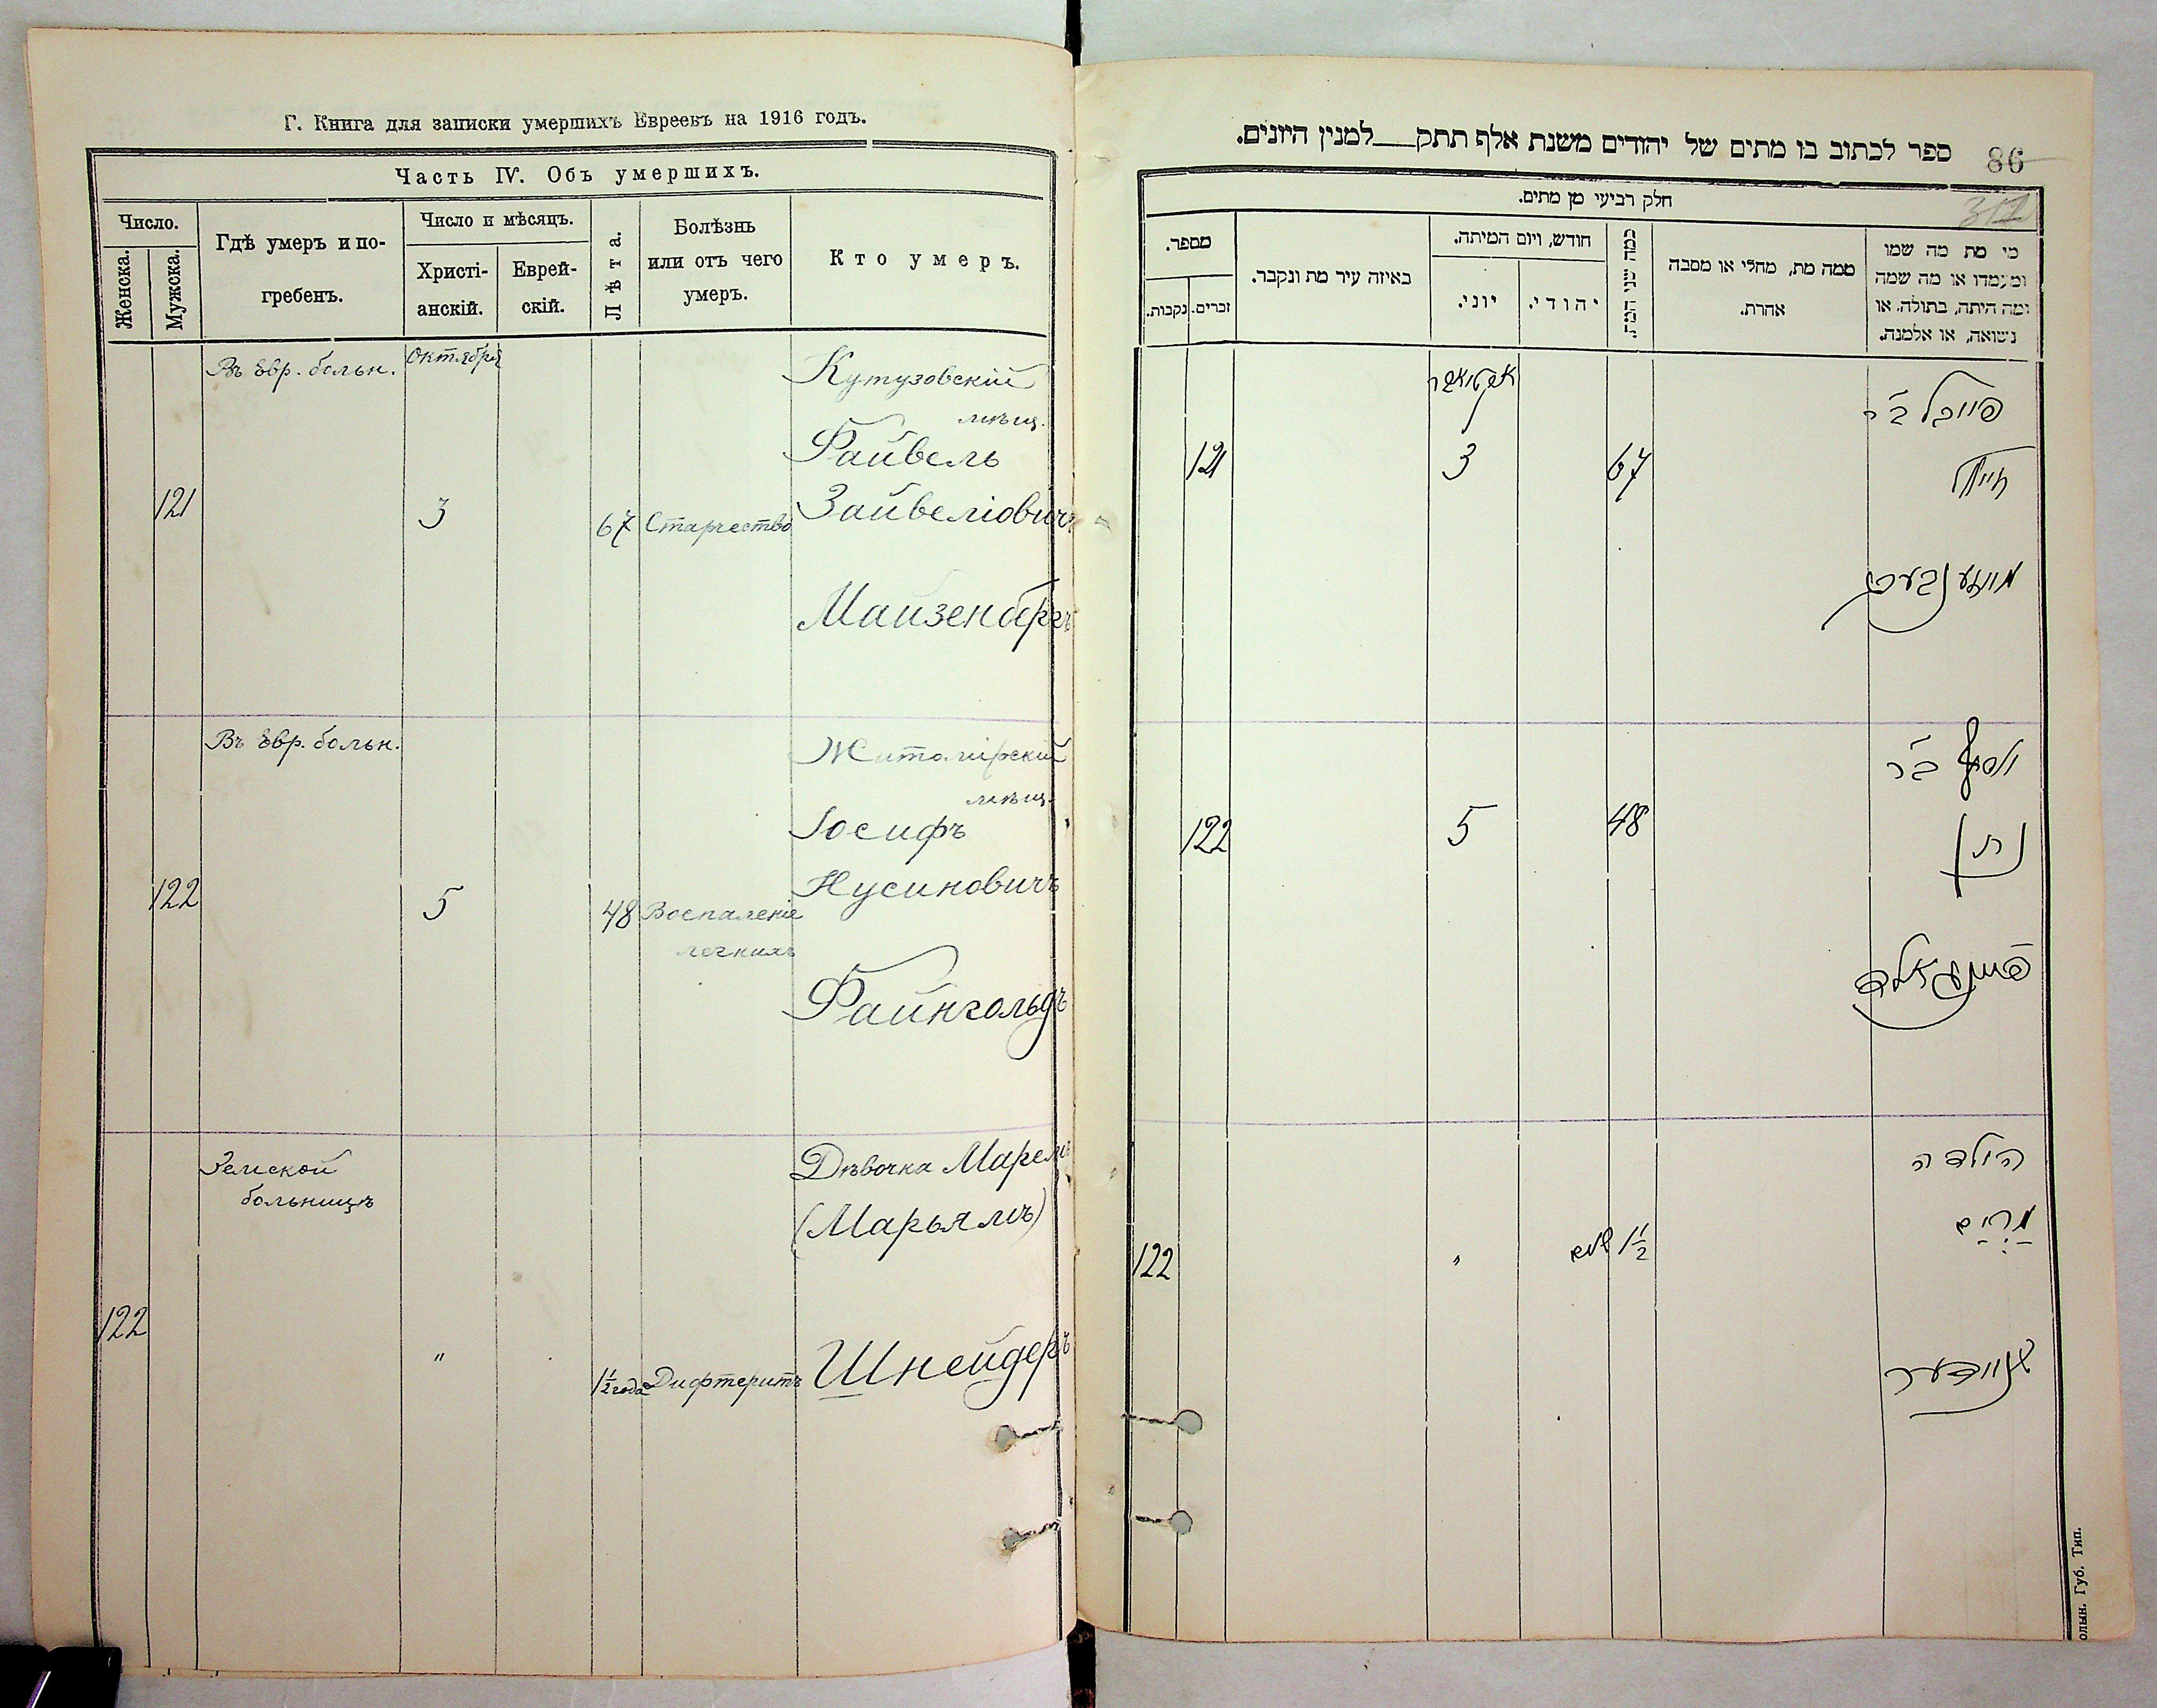 Г. Книга для записки умершихъ Евреевъ на 1916 годъ.
Часть IV. Объ умершихъ.
Число.
Женска.
Мужска.
Гдѣ умеръ и по-
гребенъ.
Число и мѣсяцъ.
Христі-
анскій.
Еврей-
скій.
Лѣта.
Болѣзнь
или отъ чего
умеръ.
Кто умеръ.
Въ Евр. больн.
Октября
Кутузовскій
мѣщ.
Файвель
121
3
67
Старчество
Зайвеліовичъ
Майзенбергъ
Въ Евр. больн.
Житомірскій
мѣщ.
Іосифъ
Нусиновичъ
122
5
48
Воспаленіе
легкихъ
Файнгольдъ
Земской
больницѣ
Дѣвочка
(Марьямъ)
122
"
1½ года
Дифтеритъ
Шнейдеръ
ספר לכתוב בו מתים של יהודים משנת אלף תתק___למנין היונים.
86
חלק רביעי מן מתים.
מי מת מה שמו
ומעמדו או מה שמה
ומה היתה, בתולה, או
נשואה, או אלמנה.
ממה מת, מחלי או מסבה
אחרת.
כמה שני המת.
חודש, ויום המיתה.
יהודי.
יוני.
באיזה עיר מת ונקבר.
מספר.
זכרים.
נקבות.
אקטאבר
פייבל ב״ר
67
3
121
מייזענבערג
יוסף ב״ר
48
5
122
נתן
פיינגאלד
הילדה
מרים
1½ שנים
"
122
שניידער
олын. Губ. Тип.